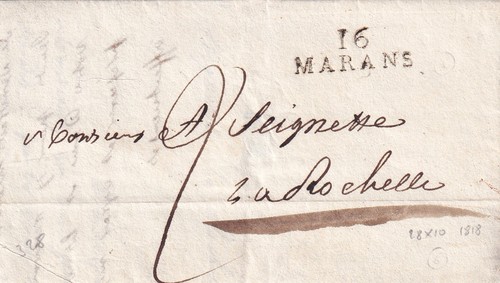 16
MARANS
Monsieur A Seignette
2
La Rochelle
328
28 X 10 1818